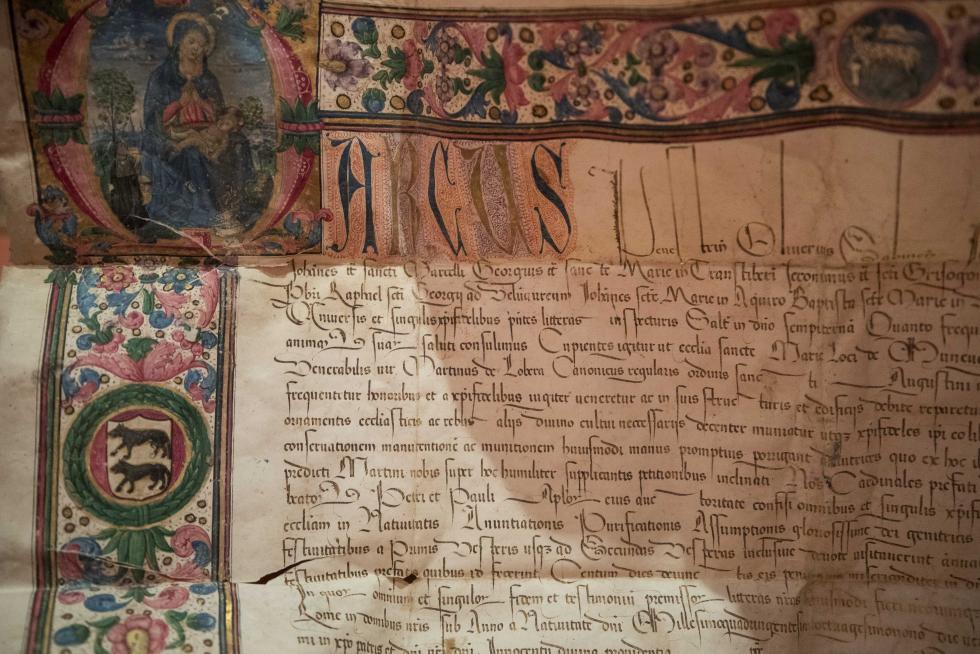 ARCUS
Venetriū Oliverius Sabinens
Johānes tt̄ sancti Marcelli Georgius tt̄ sancte Marie in Transtiberī Jeronimus tt̄ scti Grisogo
Pbrī Raphael scti Georgij ad Velūaureum Johānes scte Marie in Aquiro Baptista scte Marie in
Universis et singulis xp̄ifidelibus pn̄tes litteras inspecturis Salt̄m in dn̄o sempiternā Quanto frequ
animarū suarū saluti consulimus Cupientes igitur ut ecclīa sancte Marie Loci de
Venerabilis vir Martinus de Lobera Canonicus regularis ordinis sancti Augustini
frequentetur honoribus et a xp̄ifidelibus iugiter veneretur ac in suis structuris et edificijs debite reparetu
ornamentis ecclesiasticis ac rebus alijs divino cultui necessarijs decenter muniatur utqz xp̄ifideles ip̄i
conservationem manutentionē ac munitionem huiusmodi manus promptius porrigant adiutrices quo ex hoc
predicti Martini nobis super hoc humiliter supplicantis petitionibus inclinati Nos Cardinales prefati
beatorū Petri et Pauli Aplorū eius auctoritate confisi omnibus et singulis xp̄ifi
ecclīam in Nativitatis Annuntiationis Purificationis Assumptionis gloriosissime dei genitricis
festivitatibus a Primis Vesperis usqz ad Secundas Vesperas inclusive devote visitaverint annua
festivitatibus prefatis quibus id fecerint Centum dies de iniunctis eis penitentijs misericorditer in
In quorū omnium et singulorū fidem et testimonium premissorū litteras nrās huiusmodi fieri
Rome in domibus nrīs sub Anno a Nativitate dn̄i Millesimoquadringentesimooctuagesimonono die
mi in xp̄o patris et dn̄i nrī dn̄i Innocentii divina providentia